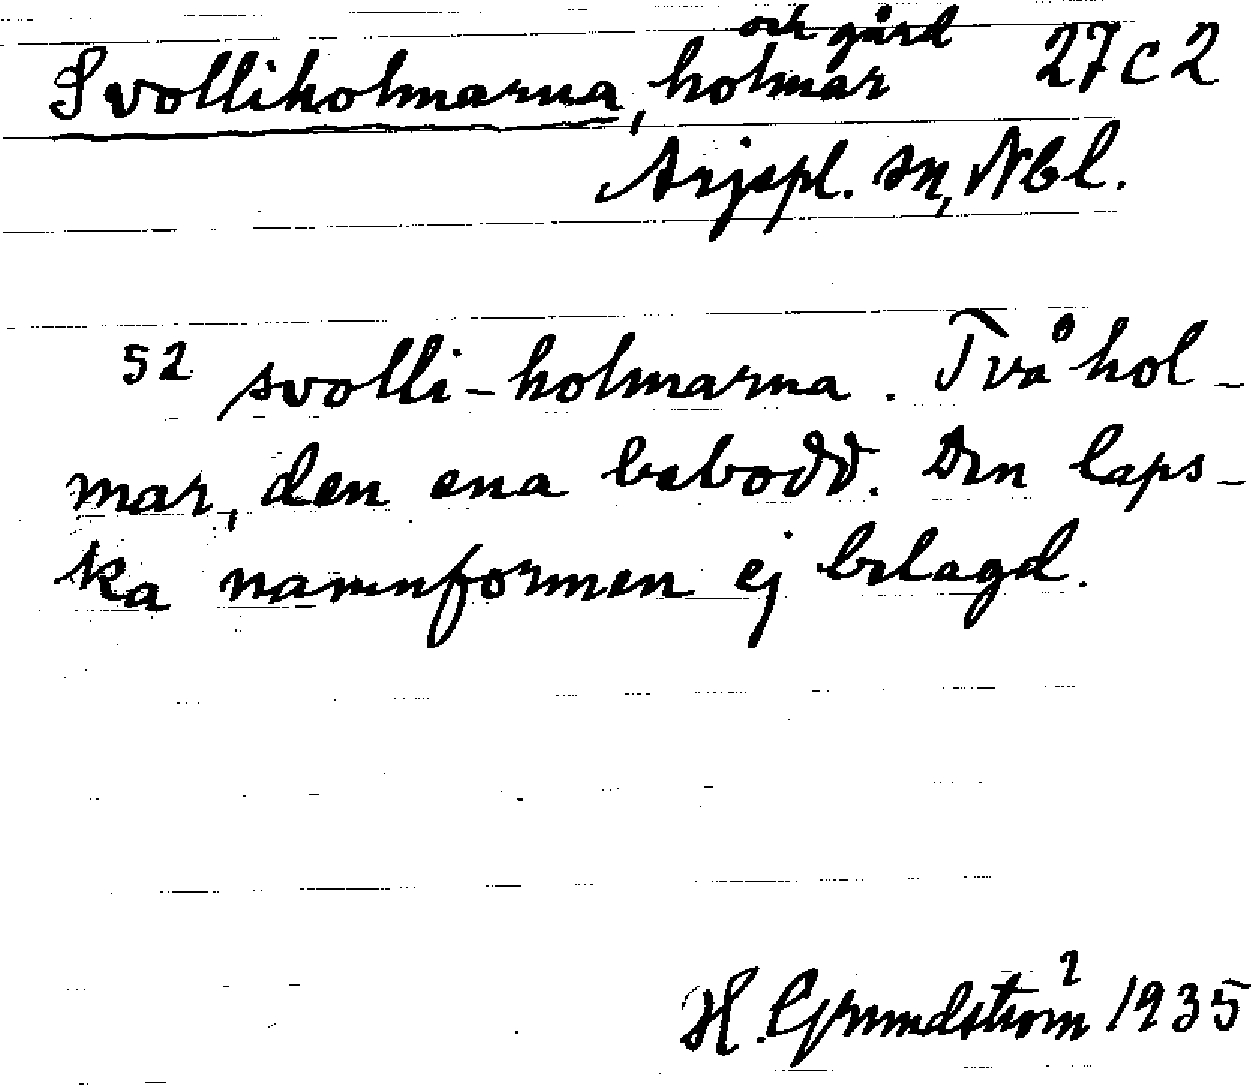 och gård
Svolliholmarna, holmar 27C2
Arjepl. sn, Nbl.
52 svolli-holmarna. Två hol-
mar, den ena bebodd. Den laps-
ka namnformen ej belagd.
H. Grundström 1935